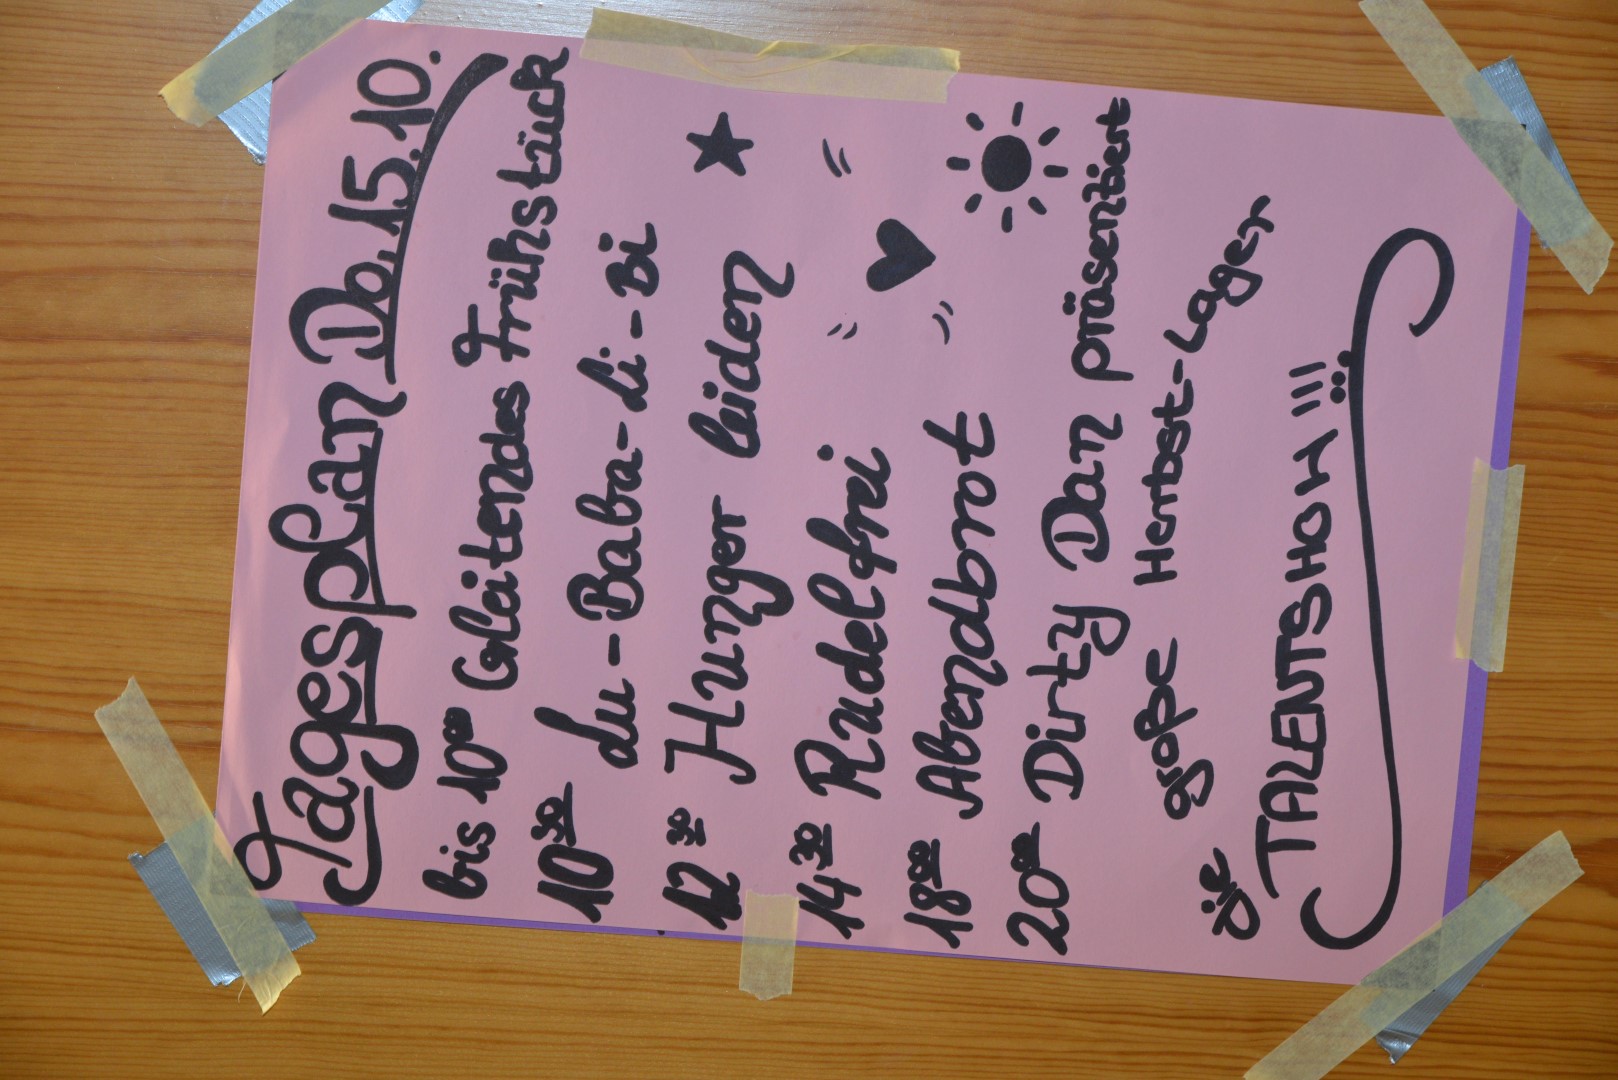 Tagesplan Do. 15.10.
bis 10⁰⁰ Gleitendes Frühstück
10³⁰ du-Baba-di-Bi
12³⁰ Hunger leiden
14³⁰ Rudelfrei
18⁰⁰ Abendbrot
20⁰⁰ Dirty Dan präsentiert
die große Herbst-Lager
TALENTSHOW!!!